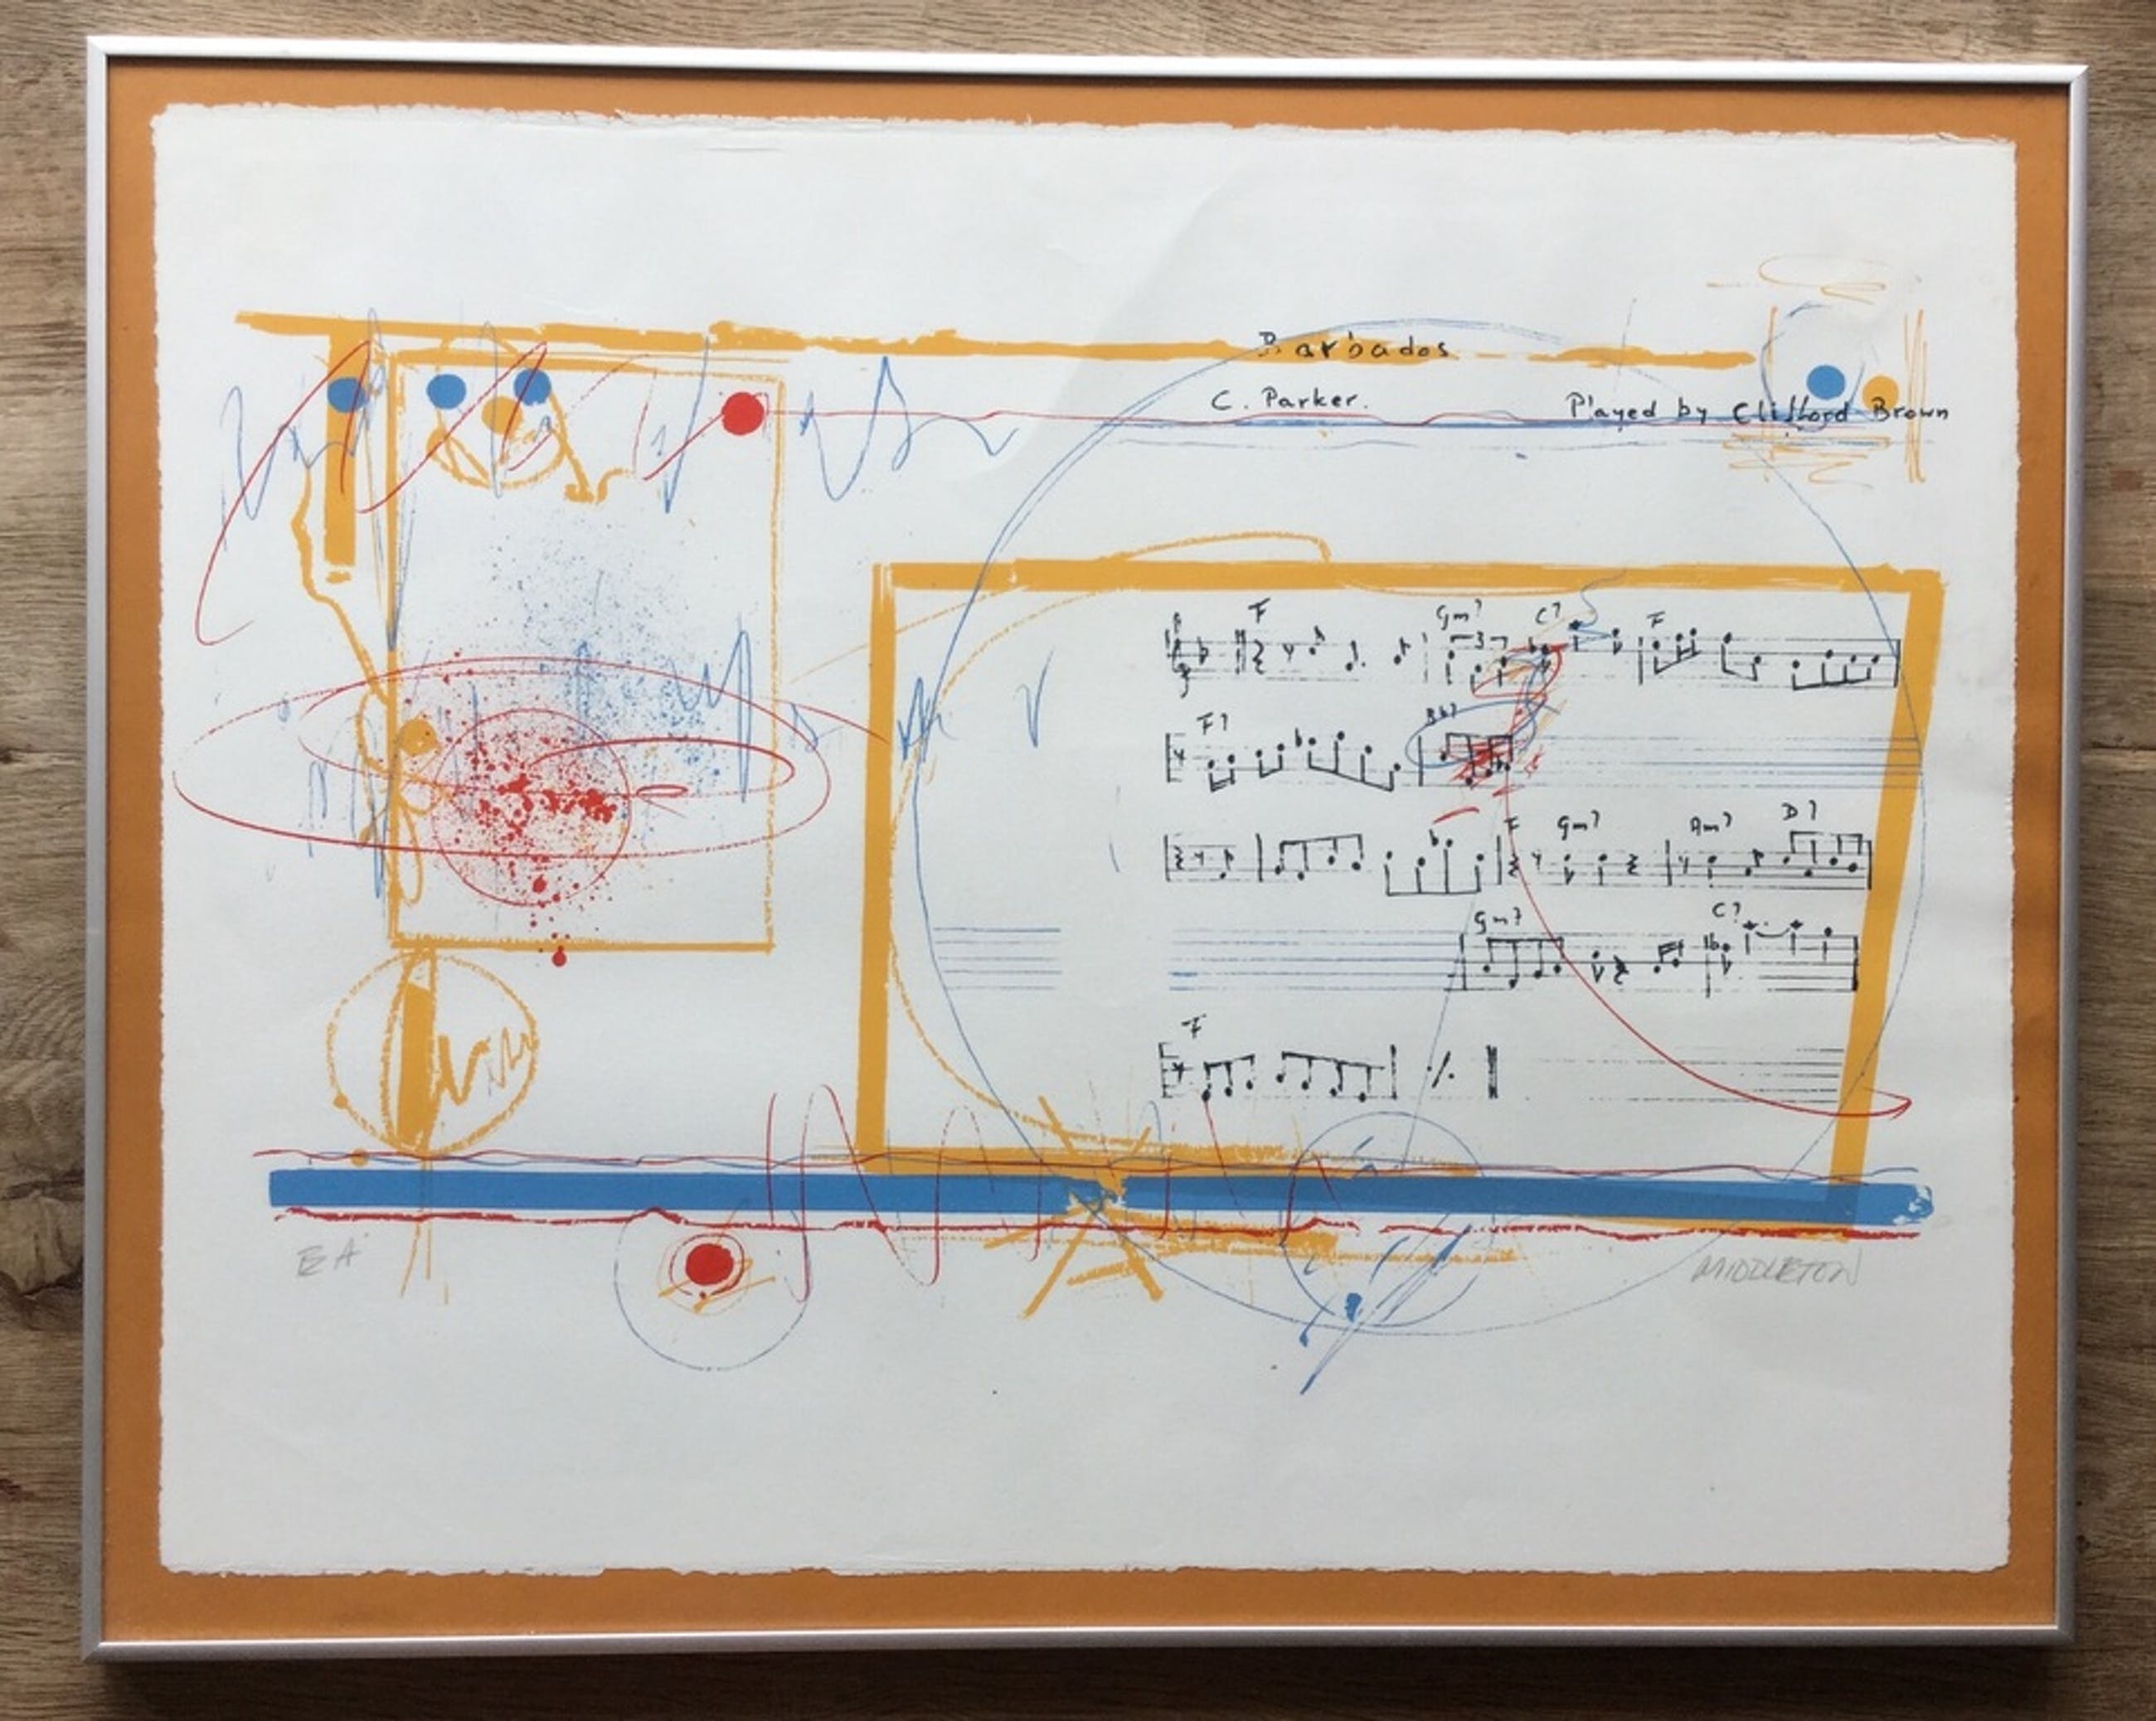 Barbados
C. Parker. Played by Clifford Brown
F Gm7 C7 F
F7 Bb7
F Gm7 Am7 D7
Gm7 C7
F
EA MIDDLETON